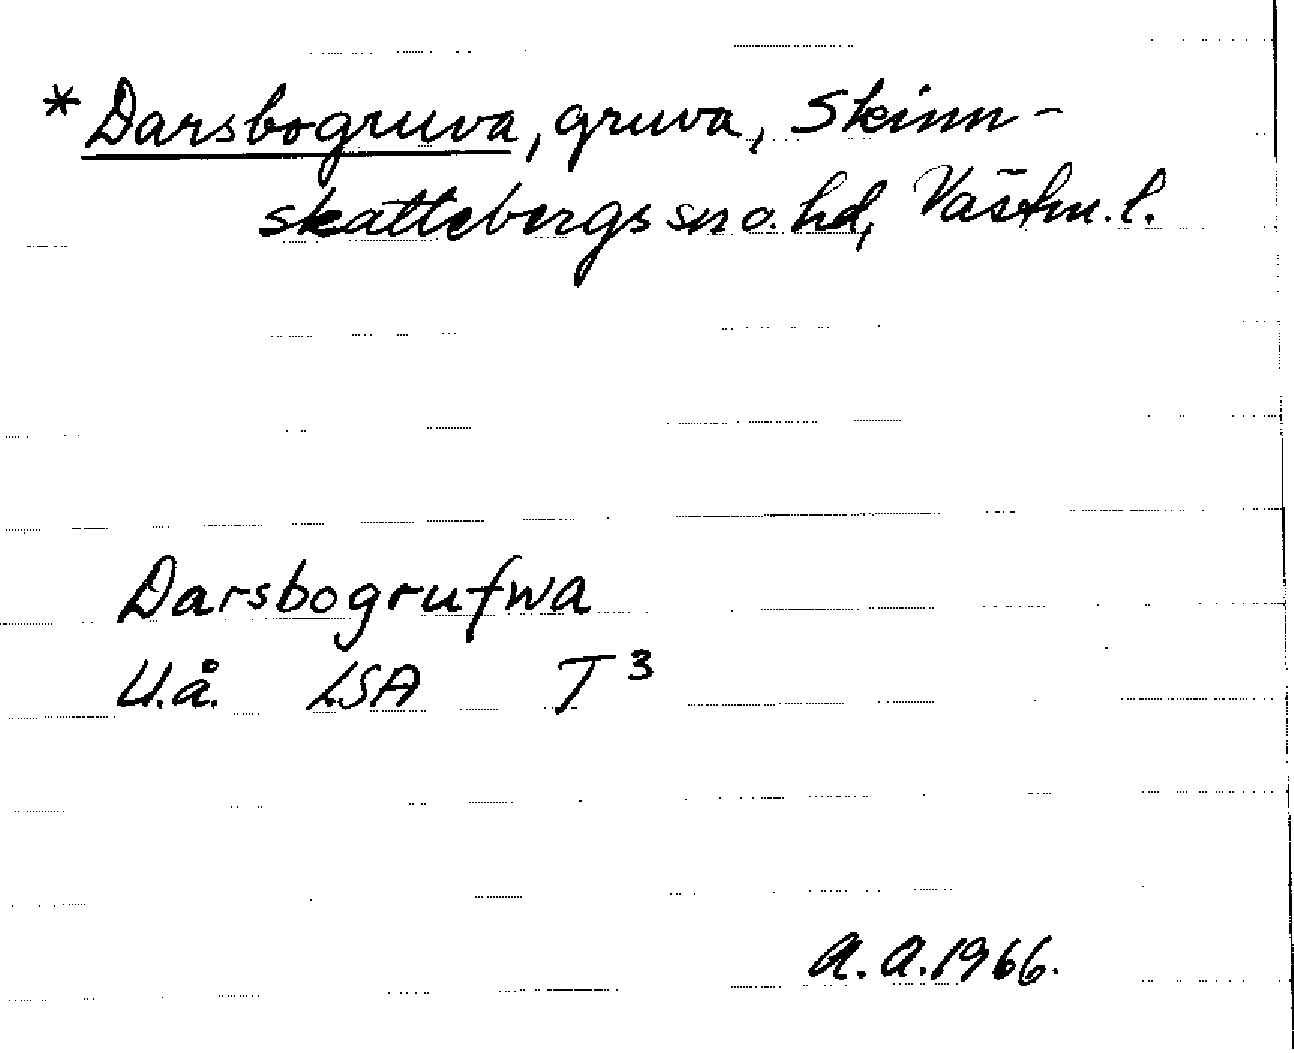 *Darsbogruva, gruva, Skinn-
skattebergs sn o. hd, Västm. l.
Darsbogrufwa
U.å. LSA T³
A.A. 1966.